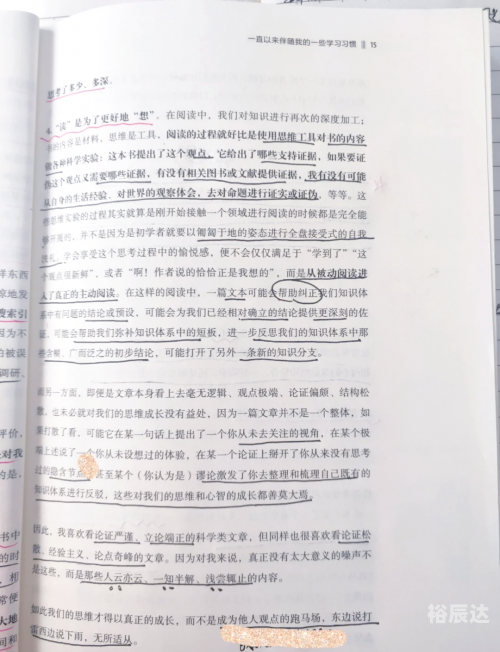 一直以来伴随我的一些学习习惯 15
思考了多少、多深。
4.“读”是为了更好地“想”。在阅读中，我们对知识进行再次的深度加工；
书的内容是材料，思维是工具，阅读的过程就好比是使用思维工具对书的内容
做各种科学实验：这本书提出了这个观点，它给出了哪些支持证据，如果要证
伪这个观点又需要哪些证据，有没有相关图书或文献提供证据，我有没有可能
从自身的生活经验、对世界的观察体会，去对命题进行证实或证伪，等等。这
些思维实验的过程其实就算是刚开始接触一个领域进行阅读的时候都是完全能
够开展的，并不是因为是初学者就要以匍匐于地的姿态进行全盘接受式的自我
洗礼。学会享受这个思考过程中的愉悦感，便不会仅仅满足于“学到了”“这
个观点很新鲜”，或者“啊！作者说的恰恰正是我想的”，而是从被动阅读进
入了真正的主动阅读。在这样的阅读中，一篇文本可能会帮助纠正我们知识体
系中有问题的结论或预设，可能会为我们已经相对确立的结论提供更深刻的佐
证，可能会帮助我们弥补知识体系中的短板，进一步反思我们的知识体系中那
些含糊、广而泛之的初步结论，可能打开了另外一条新的知识分支。
而另一方面，即便是文章本身看上去毫无逻辑、观点极端、论证偏颇、结构松
散，也未必就对我们的思维成长没有益处，因为一篇文章并不是一个整体，如
果打散了看，可能它在某一句话上提出了一个你从未去关注的视角，在某个极
端上述说了一个你从未设想过的体验，在某一个论证上掰开了你从来没有思考
过的隐含节点，甚至某个（你认为是）谬论激发了你去整理和梳理自己既有的
知识体系进行反驳，这些对我们的思维和心智的成长都善莫大焉。
因此，我喜欢看论证严谨、立论端正的科学类文章，但同样也很喜欢看论证松
散、经验主义、论点奇峰的文章。因为对我来说，真正没有太大意义的噪声不
是这些，而是那些人云亦云、一知半解、浅尝辄止的内容。
如此我们的思维才得以真正的成长，而不是成为他人观点的跑马场，东边说打
雷西边说下雨，无所适从。
样东西
惊地发
搜索引
因为不
怕被误
调研，
评价，
全对我
的是，
书中
的时
，想
常便
大地
问和
裕辰达